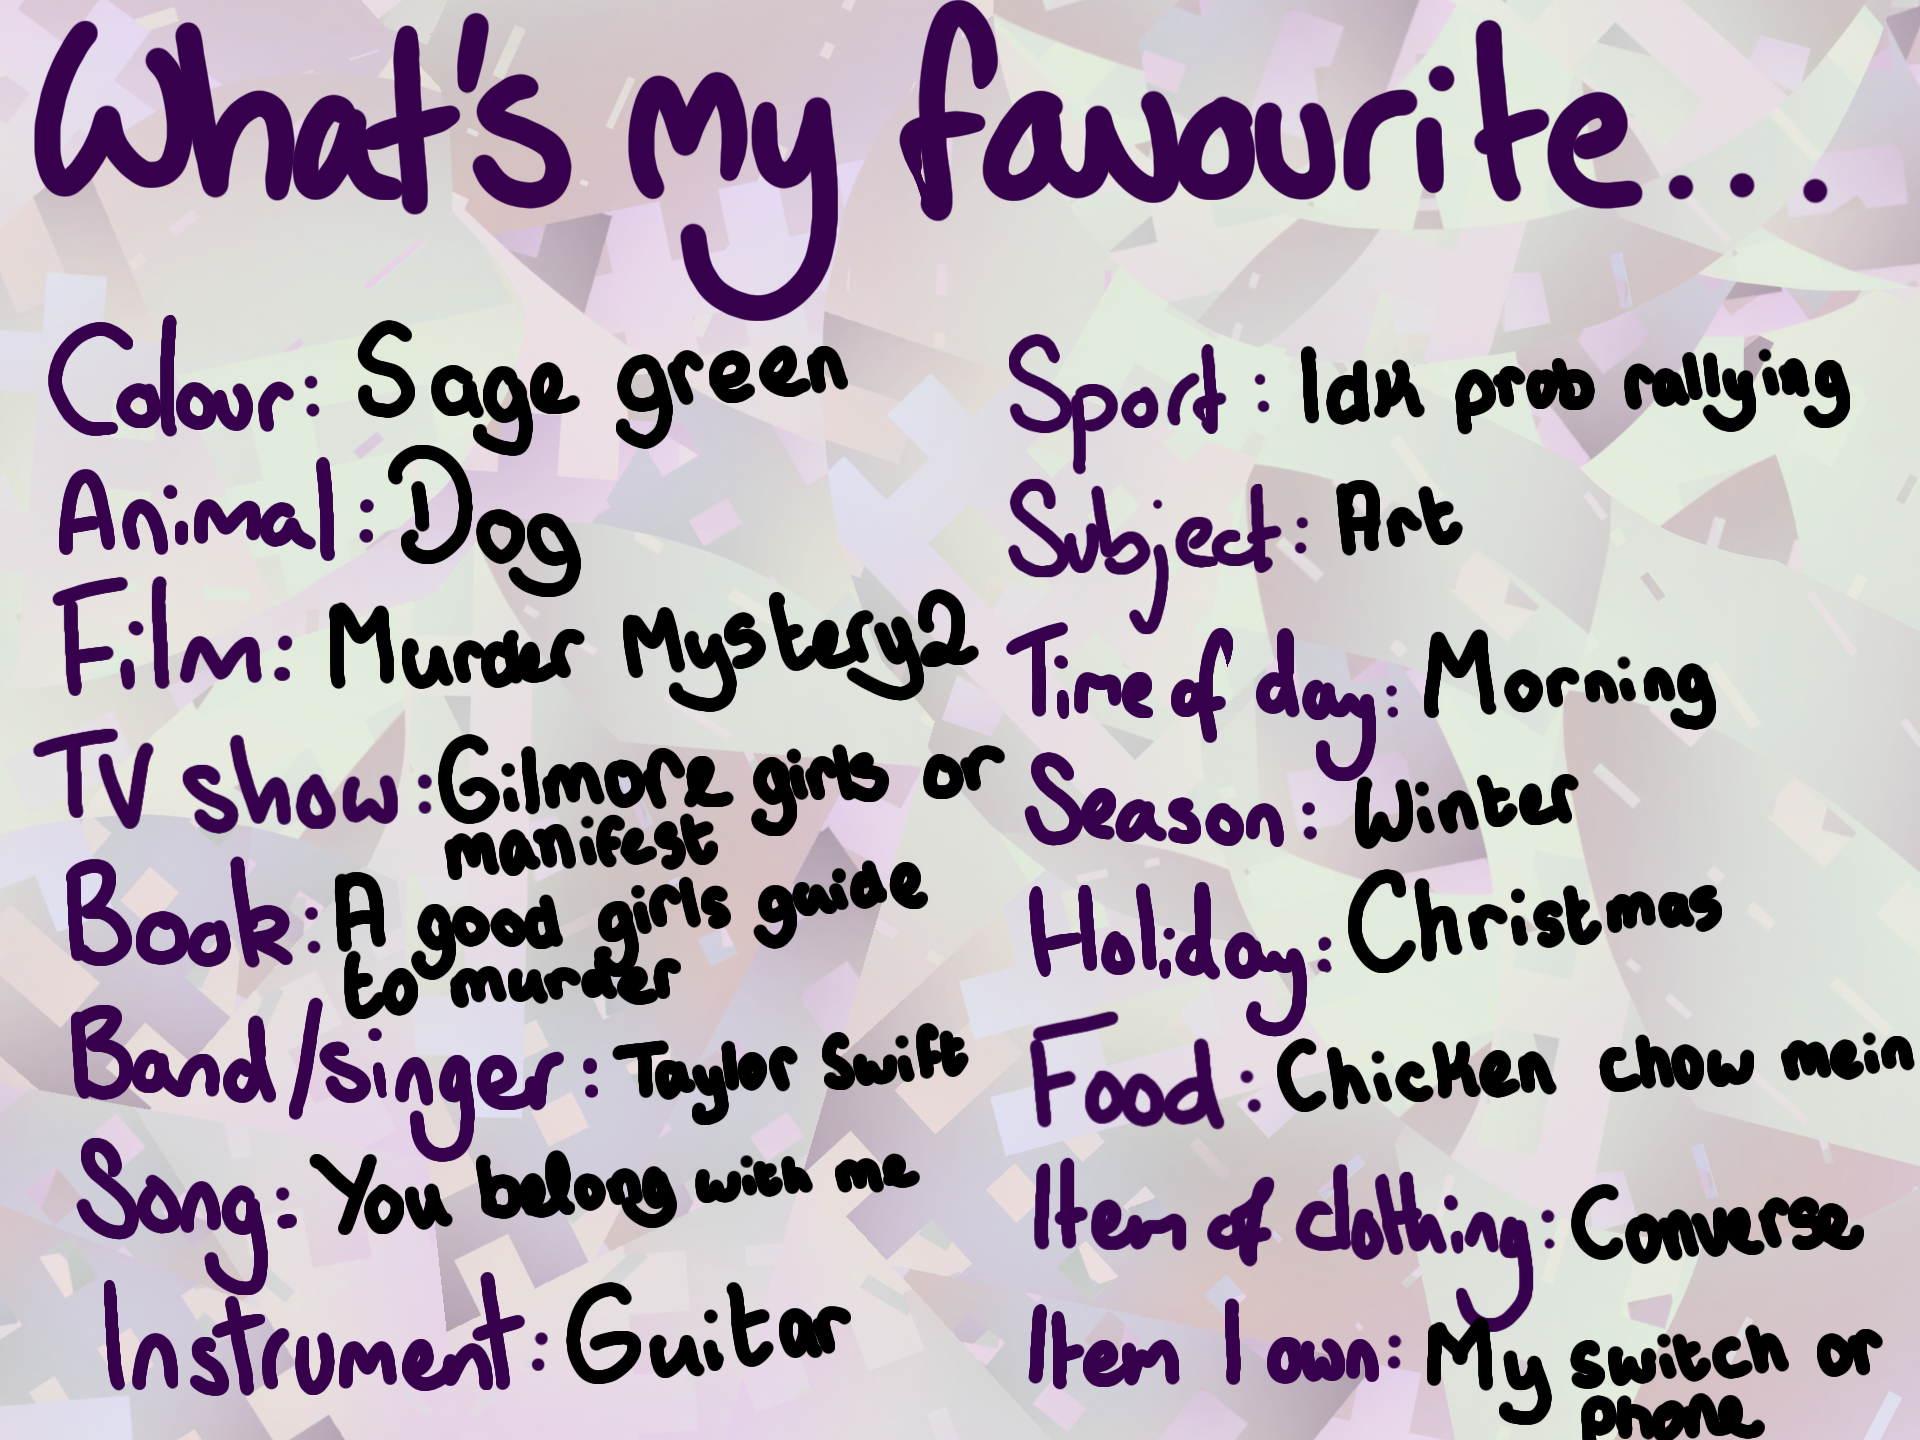 What's my favourite...
Colour: Sage green
Animal: Dog
Film: Murder Mystery 2
TV show: Gilmore girls or
manifest
Book: A good girls guide
to murder
Band/singer: Taylor Swift
Song: You belong with me
Instrument: Guitar
Sport: Idk prob rallying
Subject: Art
Time of day: Morning
Season: Winter
Holiday: Christmas
Food: Chicken chow mein
Item of clothing: Converse
Item I own: My switch or
phone